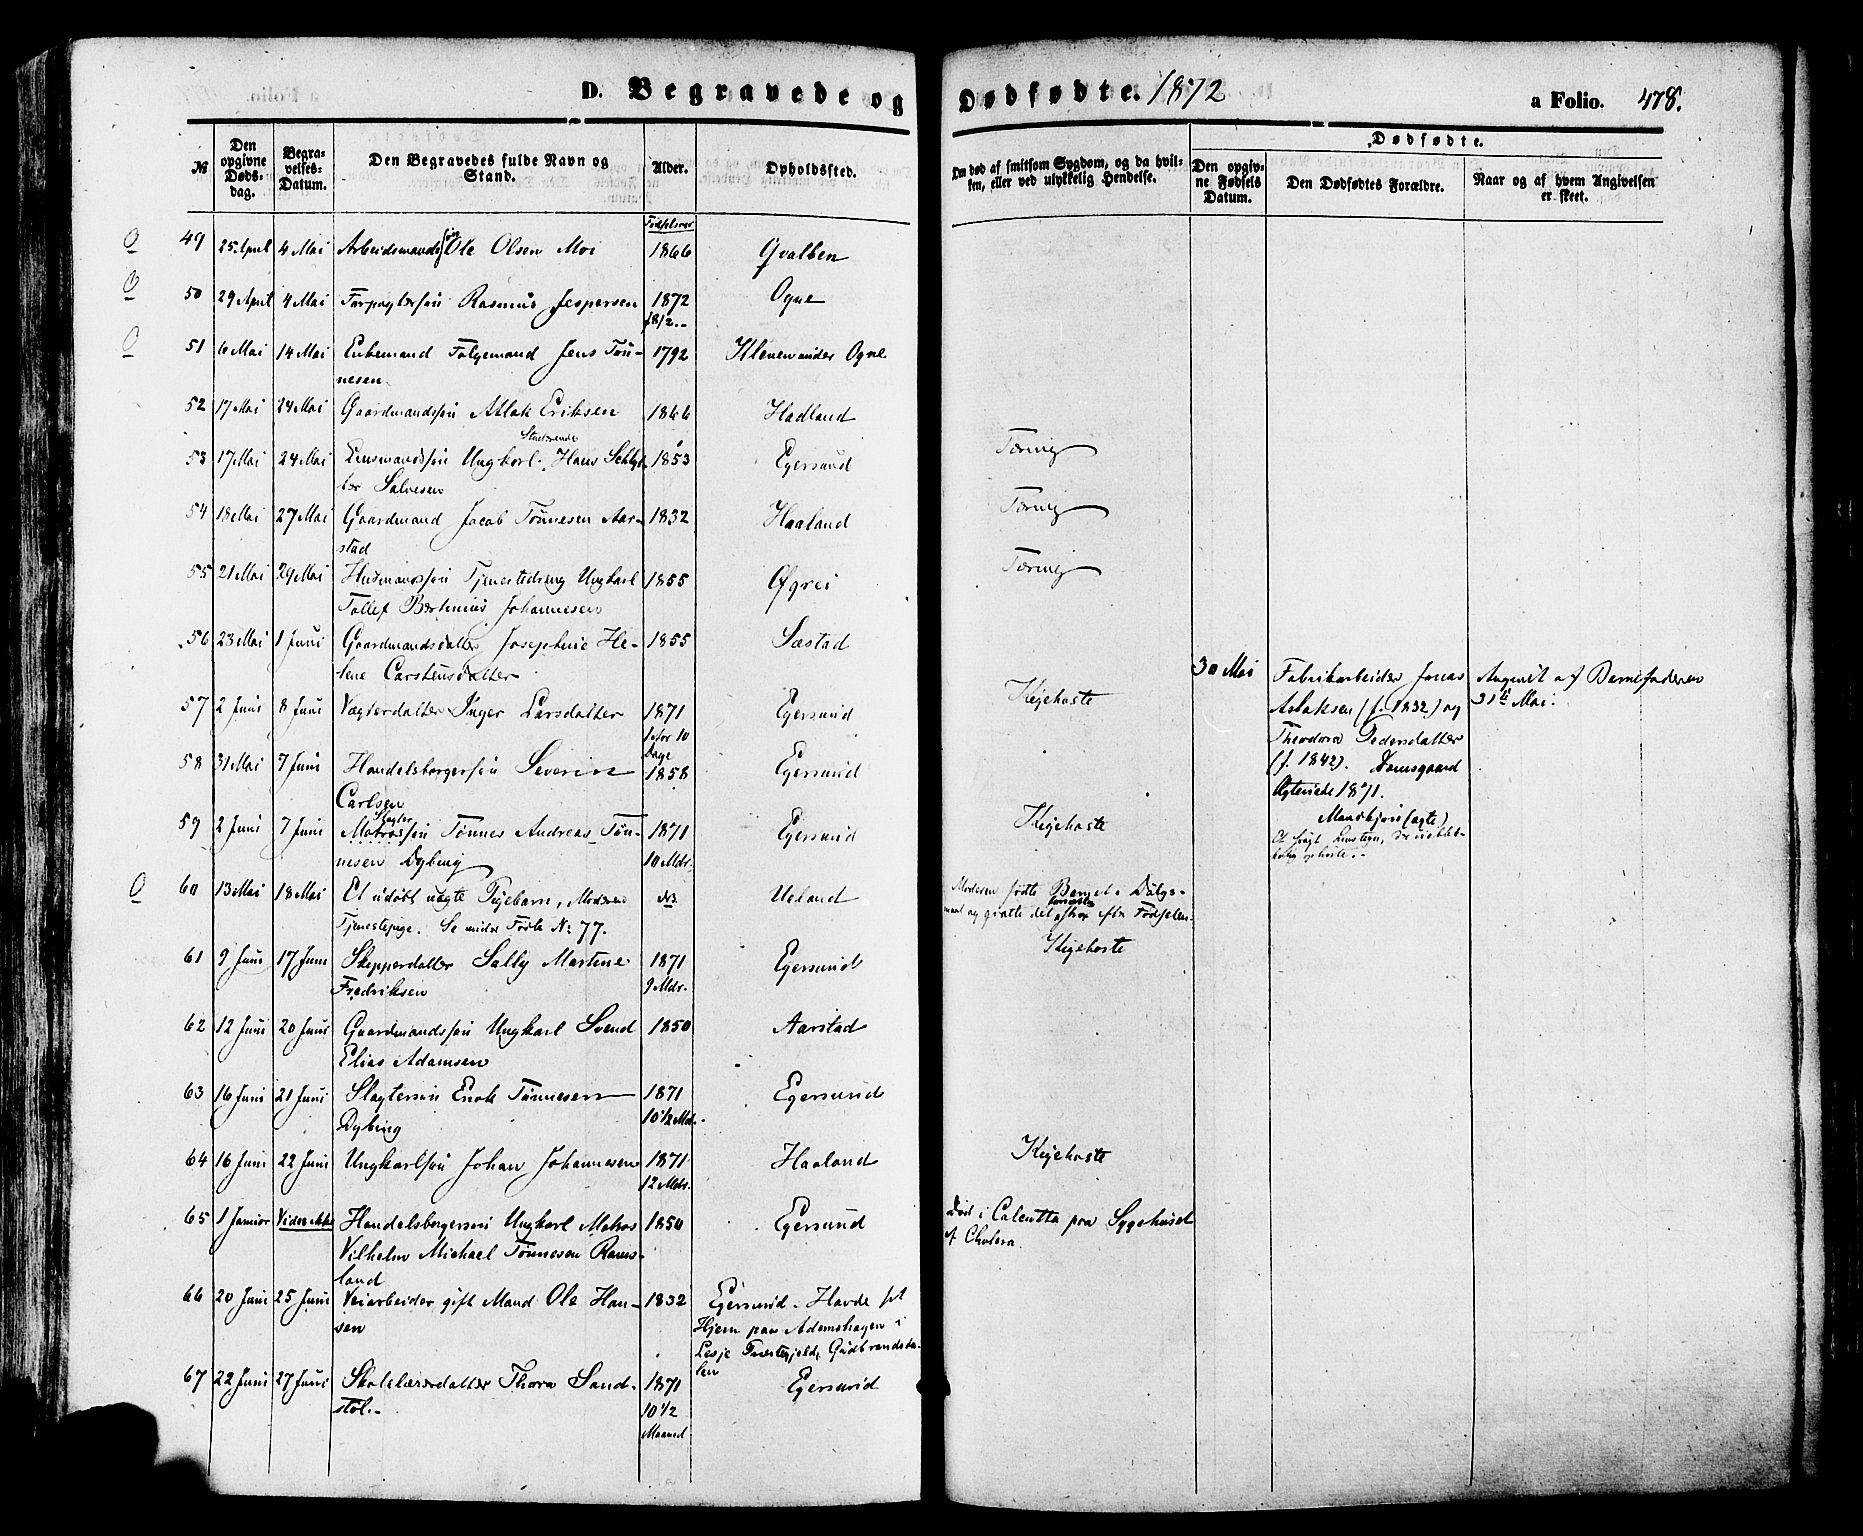 D. Begravede og Dødfødte. 1872 a Folio. 478.
№ Den opgivne Døds-dag. Begra-velses-Datum. Den Begravedes fulde Navn og Stand. Alder. Opholdssted. Om død af smitsom Sygdom, og da hvil-ken, eller ved ulykkelig Hendelse. Dødfødte.
Den opgiv-ne Fødsels Datum. Den Dødfødtes Forældre. Naar og af hvem Angivelsen er skeet.
Fødselsaar
49 25 April 4 Mai Arbeidsmandssøn Ole Olsen Moi 1866 Qvalben
50 29 April 4 Mai Forpagtersøn Rasmus Jespersen 1872 Ogne
18/2.
51 6 Mai 14 Mai Enkemand Folgemand Jens Tøn- 1792 under Ogne
nesen
52 17 Mai 24 Mai Gaardmandssøn Atlak Eriksen 1866 Hadland
Studerende
53 17 Mai 24 Mai Lensmandssøn Ungkarl Hans Schlyt- 1853 Egersund Tæring
ter Salvesen
54 18 Mai 27 Mai Gaardmand Jacob Tønnesen Aar- 1832 Haaland Tæring
stad
55 21 Mai 29 Mai Husmandssøn Tjenestedreng Ungkarl 1855 Øgrei Tæring
Tollef Bertinius Johannesen
56 23 Mai 1 Juni Gaardmandsdatter Josephine He- 1855 Sæstad
lene Carstensdatter
30 Mai Fabrikarbeider Jonas Angivet af Barnefaderen
Aslaksen (f. 1832) og 31te Mai.
Theodora Pedersdatter
(f. 1842). Damsgaard
Ægteviede 1871.
Mandkjøn (ægte)
57 2 Juni 8 Juni Vægterdatter Inger Larsdatter 1871 Egersund Kighoste
1 Aar 10 Dage
58 31 Mai 7 Juni Handelsborgersøn Severin 1858 Egersund
Carlsen
Slagter
59 2 Juni 7 Juni Matrossøn Tønnes Andreas Tøn- 1871 Egersund Kighoste
nesen Dybing 10 Mdr.
60 13 Mai 18 Mai Et udøbt uægte Pigebarn, Moderen Ueland Moderen fødte Barnet i Dølgs-
Tjenestepige. Se under Fødte No 77. maal og qvalte det efter Fødselen.
61 9 Juni 17 Juni Skipperdatter Sally Martine 1871 Egersund Kighoste
Fredriksen 9 Mdr.
62 12 Juni 20 Juni Gaardmandssøn Ungkarl Svend 1850 Aarstad
Elias Adamsen
63 16 Juni 21 Juni Slagtersøn Enok Tønnesen 1871 Egersund
Dybing 10½ Md.
64 16 Juni 22 Juni Ungkarlsøn Johan Johannesen 1871 Haaland Kighoste
12 Mdr.
65 1 Januar Vides ikke Handelsborgersøn Ungkarl Matros 1850 Egersund Død i Calcutta paa Sygehuset
Vilhelm Michael Tønnesen Rams- af Cholera.
land
66 20 Juni 25 Juni Veiarbeider gift Mand Ole Han- 1832 Egersund. Havde sit
sen Hjem paa Ademshagen i
Lesje Præstegjeld, Gudbrandsda-
len
67 22 Juni 27 Juni Skolelærerdatter Thora Sand- 1871 Egersund
støl. 10½
Maaned